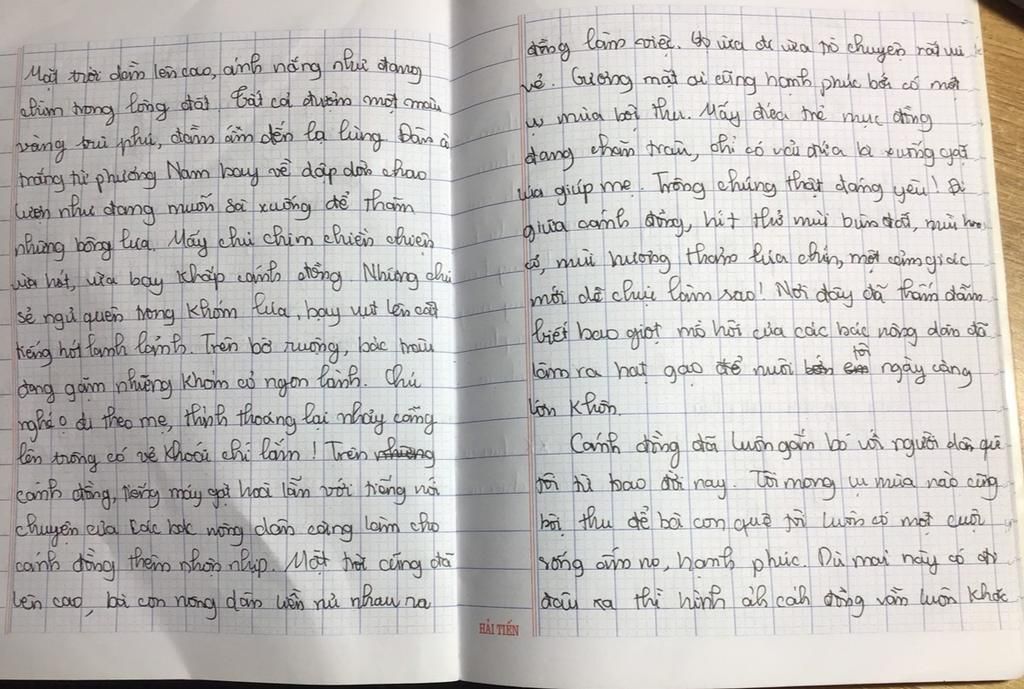 Mặt trời dần lên cao, ánh nắng như đang
chìm trong lòng đất. Tất cả đượm một màu
vàng trù phú, đầm ấm đến lạ lùng. Đàn cò
trắng từ phương Nam bay về dập dờn chao
lượn như đang muốn sà xuống để thăm
những bông lúa. Mấy chú chim chiền chiện
vừa hót, vừa bay khắp cánh đồng. Những chú
sẻ ngủ quên trong khóm lúa, bay vụt lên cất
tiếng hót lanh lảnh. Trên bờ ruộng, bác trâu
đang gặm những khóm cỏ ngon lành. Chú
nghé đi theo mẹ, thỉnh thoảng lại nhảy cẫng
lên trông có vẻ khoái chí lắm! Trên những
cánh đồng, tiếng máy gặt hoà lẫn với tiếng nói
chuyện của các bác nông dân càng làm cho
cánh đồng thêm nhộn nhịp. Mặt trời cũng đã
lên cao, bà con nông dân liền rủ nhau ra
đồng làm việc. Họ vừa đi vừa trò chuyện rất vui
vẻ. Gương mặt ai cũng hạnh phúc bởi có một
vụ mùa bội thu. Mấy đứa trẻ mục đồng
đang chăn trâu, chỉ có vài đứa là xuống gặt
lúa giúp mẹ. Trông chúng thật đáng yêu! Đi
giữa cánh đồng, hít thở mùi bùn đất, mùi hoa
cỏ, mùi hương thơm lúa chín, một cảm giác
mới dễ chịu làm sao! Nơi đây đã thấm đẫm
biết bao giọt mồ hôi của các bác nông dân đã
làm ra hạt gạo để nuôi tôi ngày càng
lớn khôn.
Cánh đồng đã luôn gắn bó với người dân quê
tôi từ bao đời nay. Tôi mong vụ mùa nào cũng
bội thu để bà con quê tôi luôn có một cuộc
sống ấm no, hạnh phúc. Dù mai này có đi
đâu xa thì hình ảnh cánh đồng vẫn luôn khắc
HẢI TIẾN